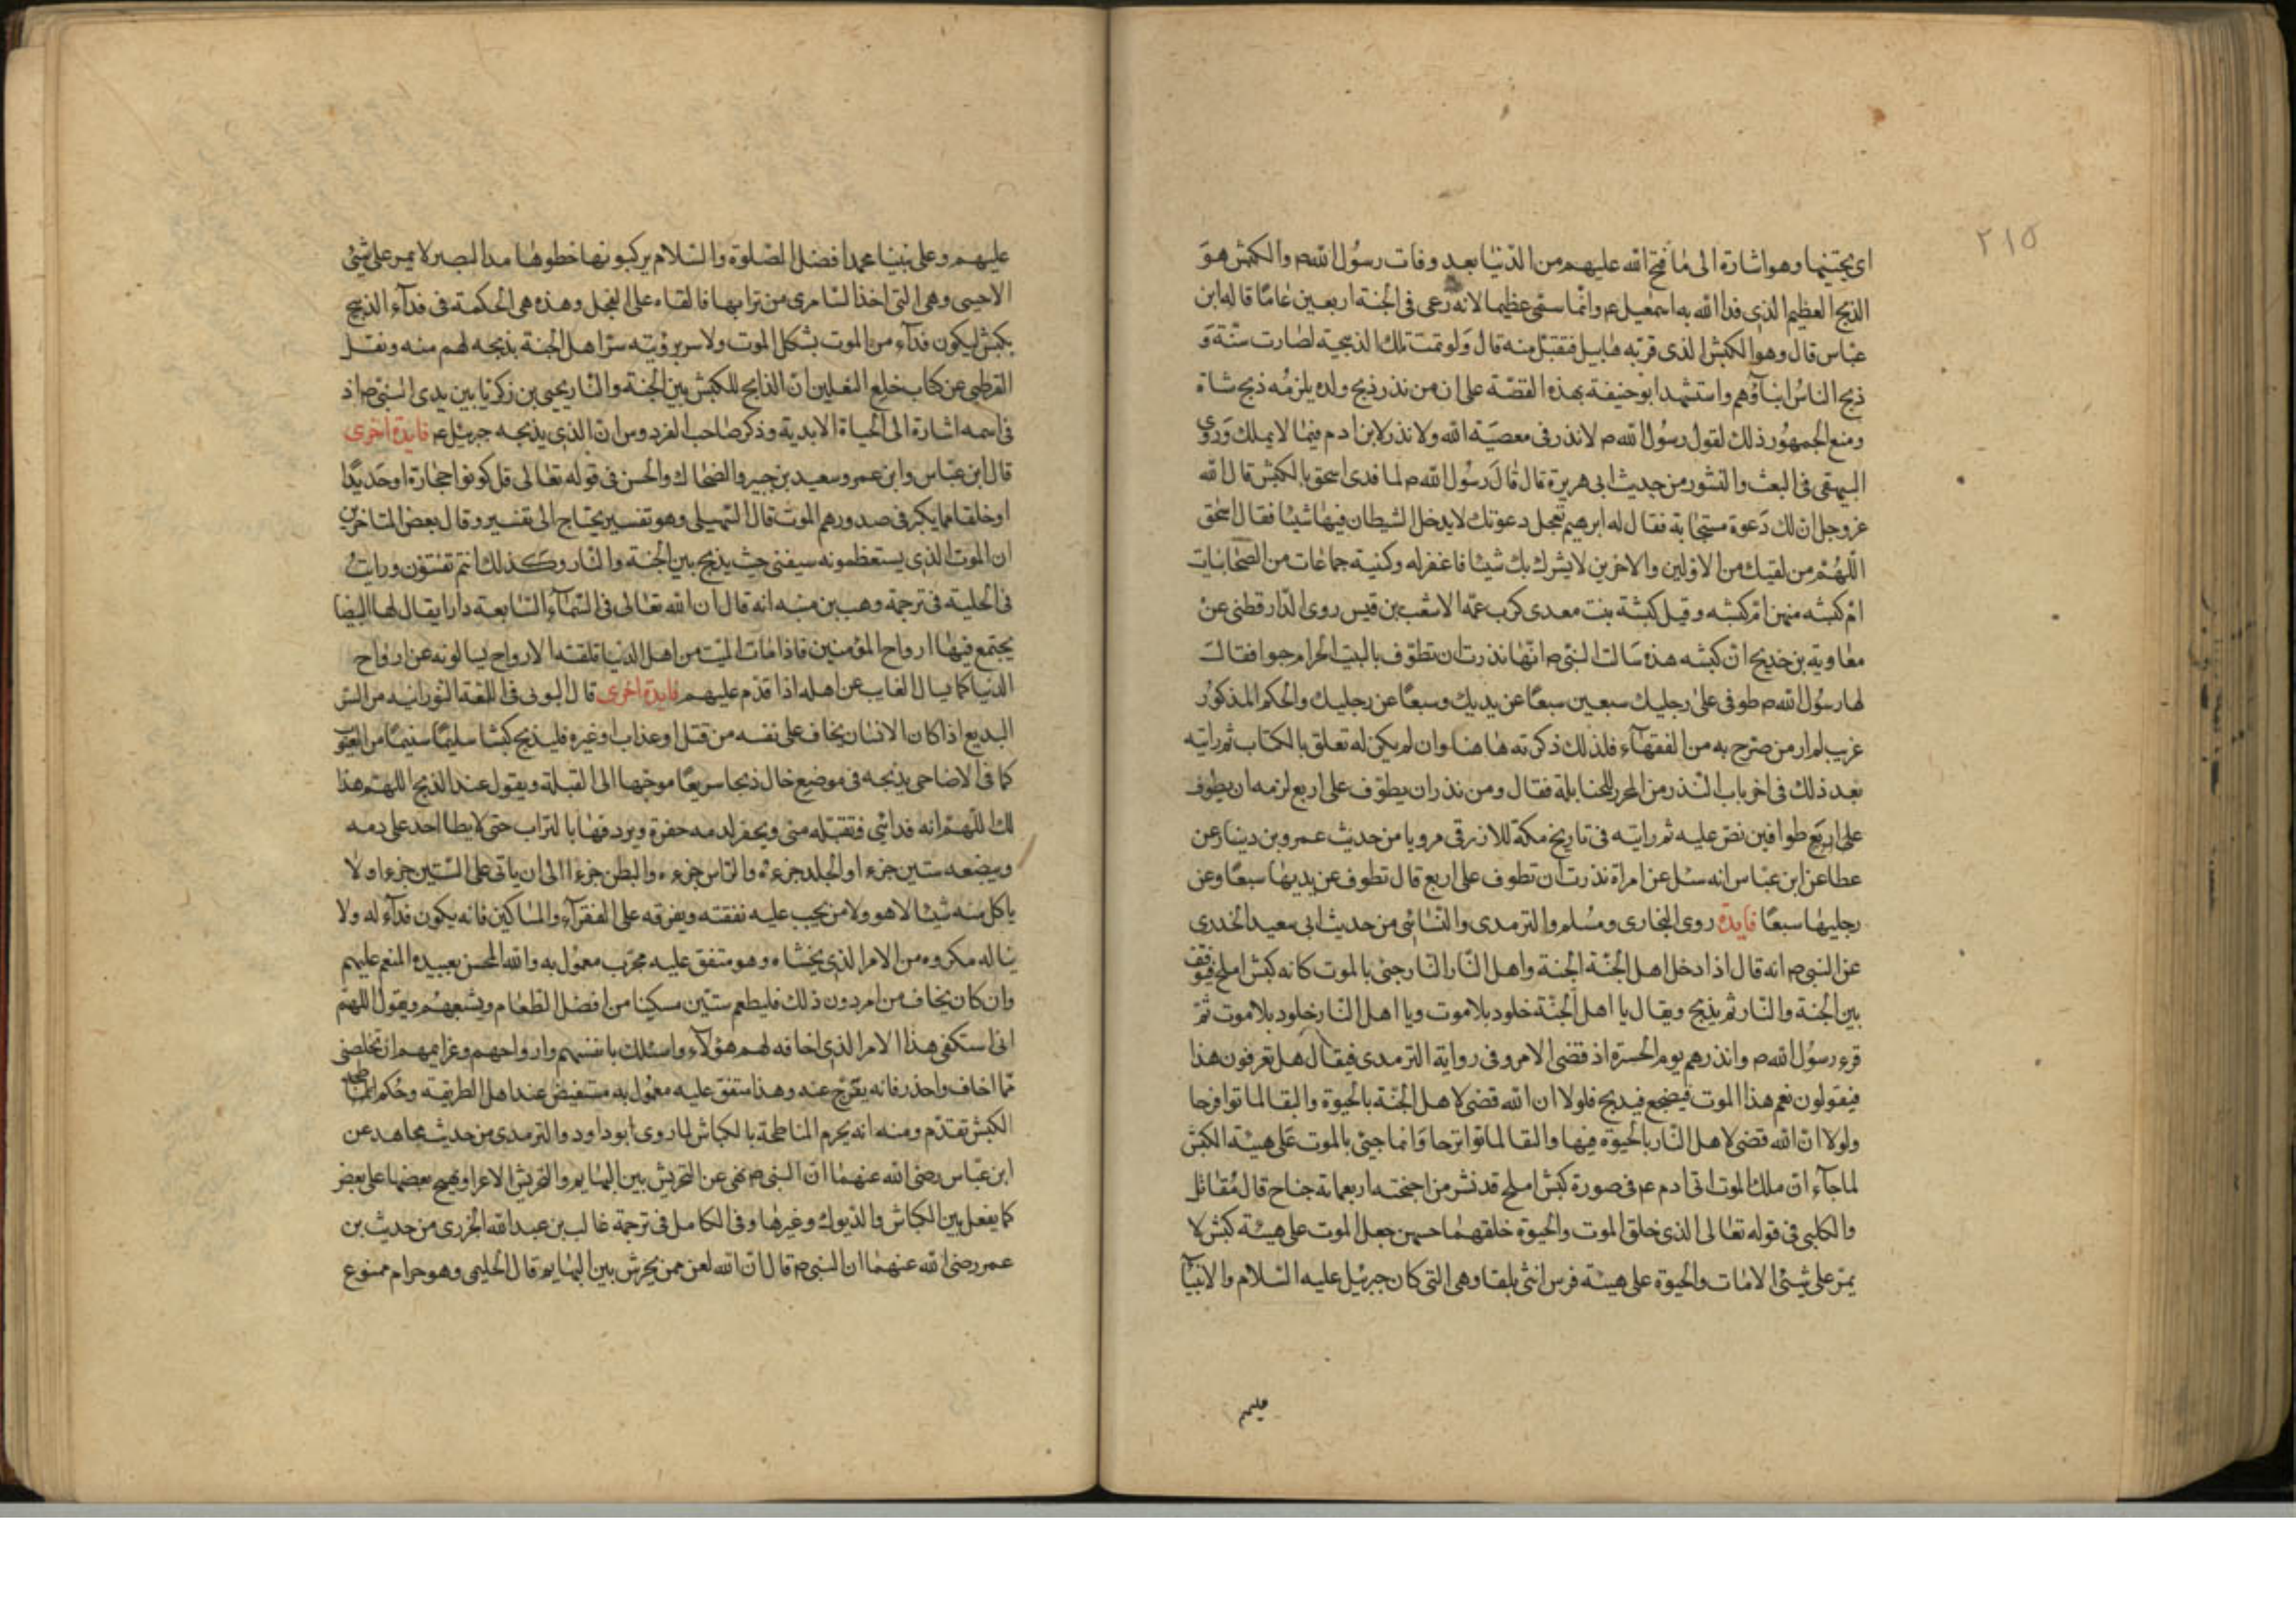 ٢١٥
اى يجتنيها وهو اشارة الى ما فتح الله عليهم من الدنيا بعد وفات رسول الله ص والكبش هو
الذبح العظيم الذى فدا الله به اسمعيل عم وانما سمى عظيما لانه رعى فى الجنة اربعين عاما قاله ابن
عباس قال وهو الكبش الذى قربه هابيل فتقبل منه قال ولو تمت تلك الذبيحة لصارت سنة و
ذبح الناس ابناؤهم واستشهد ابو حنيفة بهذه القصة على ان من نذر ذبح ولده يلزمه ذبح شاة
ومنع الجمهور ذلك لقول رسول الله ص لا نذر فى معصية الله ولا نذر لابن ادم فيما لا يملك وروى
البيهقى فى البعث والنشور من حديث ابى هريرة قال قال رسول الله ص لما فدى اسحق بالكبش قال الله
عز وجل ان لك دعوة مستجابة فقال له ابرهيم تعجل دعوتك لا يدخل الشيطان فيها شيئا فقال اسحق
اللهم من لقيك من الاولين والاخرين لا يشرك بك شيئا فاغفر له وكنية جماعات من الصحابيات
ام كبشه منهن ام كبشه وقيل كبشة بنت معدى كرب عمة الاشعب بن قيس روى الدارقطنى عن
معاوية بن خديج ان كبشه هذه سالت النبى ص انها نذرت ان تطوف بالبيت الحرام حبوا فقال
لها رسول الله ص طوفى على رجليك سبعين سبعا عن يديك وسبعا عن رجليك والحكم المذكور
غريب لم ار من صرح به من الفقهاء فلذلك ذكرته هاهنا وان لم يكن له تعلق بالكتاب ثم رايته
بعد ذلك فى اخر باب النذر من المحرر للحنابلة فقال ومن نذر ان يطوف على اربع لزمه ان يطوف
على اربع طوافين نص عليه ثم رايته فى تاريخ مكة للازرقى مرويا من حديث عمرو بن دينار عن
عطا عن ابن عباس انه سئل عن امراة نذرت ان تطوف على اربع قال تطوف عن يديها سبعا وعن
رجليها سبعا فايدة روى البخارى ومسلم والترمدى والنسائى من حديث ابى سعيد الخدرى
عن النبى ص انه قال اذا دخل اهل الجنة الجنة واهل النار النار جئ بالموت كانه كبش املح فيوقف
بين الجنة والنار ثم يذبح ويقال يا اهل الجنة خلود بلا موت ويا اهل النار خلود بلا موت ثم
قرء رسول الله ص وانذرهم يوم الحسرة اذ قضى الامر وفى رواية الترمدى فيقال هل تعرفون هذا
فيقولون نعم هذا الموت فيضجع فيذبح فلولا ان الله قضى لاهل الجنة بالحيوة والبقا لماتوا فرحا
ولولا ان الله قضى لاهل النار بالحيوة فيها والبقا لماتوا ترحا وانما جيئ بالموت على هيئة الكبش
لما جاء ان ملك الموت اتى ادم عم فى صورة كبش املح قد نشر من اجنحته اربعماية جناح قال مقاتل
والكلبى فى قوله تعالى الذى خلق الموت والحيوة خلقهما جسمين جعل الموت على هيئة كبش لا
يمر على شئ الا مات والحيوة على هيئة فرس انثى بلقا وهى التى كان جبرئيل عليه السلام والانبيآ
عليهم
عليهم وعلى نبينا محمد افضل الصلوة والسلام يركبونها خطوها مد البصر لا يمر على شئ
الا حيى وهى التى اخذ السامرى من ترابها فالقاه على العجل وهذه هى الحكمة فى فداء الذبيح
بكبش ليكون فداء من الموت بشكل الموت ولا سر برؤيته سرا هل الجنة بذبحه لهم منه ونقل
القرطبى عن كتاب خلع النعلين ان الذابح للكبش بين الجنة والنار يحيى بن زكريا بين يدى النبى ص اذ
فى اسمه اشارة الى الحياة الابدية وذكر صاحب الفردوس ان الذى يذبحه جبرئيل عم فايدة اخرى
قال ابن عباس وابن عمر وسعيد بن جبير والضحاك والحسن فى قوله تعالى قل كونوا حجارة او حديدا
او خلقا مما يكبر فى صدورهم الموت قال السهيلى وهو تفسير يحتاج الى تفسير وقال بعض المتاخرين
ان الموت الذى يستعظمونه سيفنى حيث يذبح بين الجنة والنار وكذلك انتم تفتنون ورايت
فى الحلية فى ترجمة وهب بن منبه انه قال ان الله تعالى فى السماء السابعة دارا يقال لها البيضا
يجتمع فيها ارواح المؤمنين فاذا مات الميت من اهل الدنيا تلقته الارواح يسالونه عن ارواح
الدنيا كما يسال الغايب عن اهله اذا قدم عليهم فايدة اخرى قال البونى فى اللمعة النورانية من السر
البديع اذا كان الانسان يخاف على نفسه من قتل او عذاب او غيره فليذبح كبشا سليما سنيما من العيوب
كما فى الاضاحى يذبحه فى موضع خال ذبحا سريعا موجها الى القبلة ويقول عند الذبح اللهم هذا
لك اللهم انه فدائى فتقبله منى ويحفر لدمه حفرة ويردفها بالتراب حتى لا يطا احد على دمه
ويبضعه ستين جزءا والجلد جزءه والراس جزءه والبطن جزءا الى ان ياتى على الستين جزءا ولا
ياكل منه شيئا لا هو ولا من يجب عليه نفقته ويفرقه على الفقراء والمساكين فانه يكون فداء له ولا
يناله مكروه من الامر الذى يخشاه وهو متفق عليه مجرب معمول به والله المحسن بعبيده المنعم عليهم
وان كان يخاف من امر دون ذلك فليطعم ستين مسكينا من افضل الطعام ويشبعهم ويقول اللهم
انى استكفى هذا الامر الذى اخافه لهم هؤلاء واسئلك بانفسهم وارواحهم وعزايمهم ان تخلصنى
مما اخاف واحذر فانه يفرج عنه وهذا متفق عليه معمول به مستفيض عند اهل الطريقة وحكم
الكبش تقدم ومنه انه يحرم المناطحة بالكباش لما روى ابو داود والترمدى من حديث مجاهد عن
ابن عباس رضى الله عنهما ان النبى ص نهى عن التحريش بين البهايم والتحريش الاغرا وتهييج بعضها على بعض
كما يفعل بين الكباش والديوك وغيرها وفى الكامل فى ترجمة غالب بن عبد الله الخزرى من حديث بن
عمر رضى الله عنهما ان النبى ص قال ان الله لعن ممن يحرش بين البهايم قال الحليمى وهو حرام ممنوع